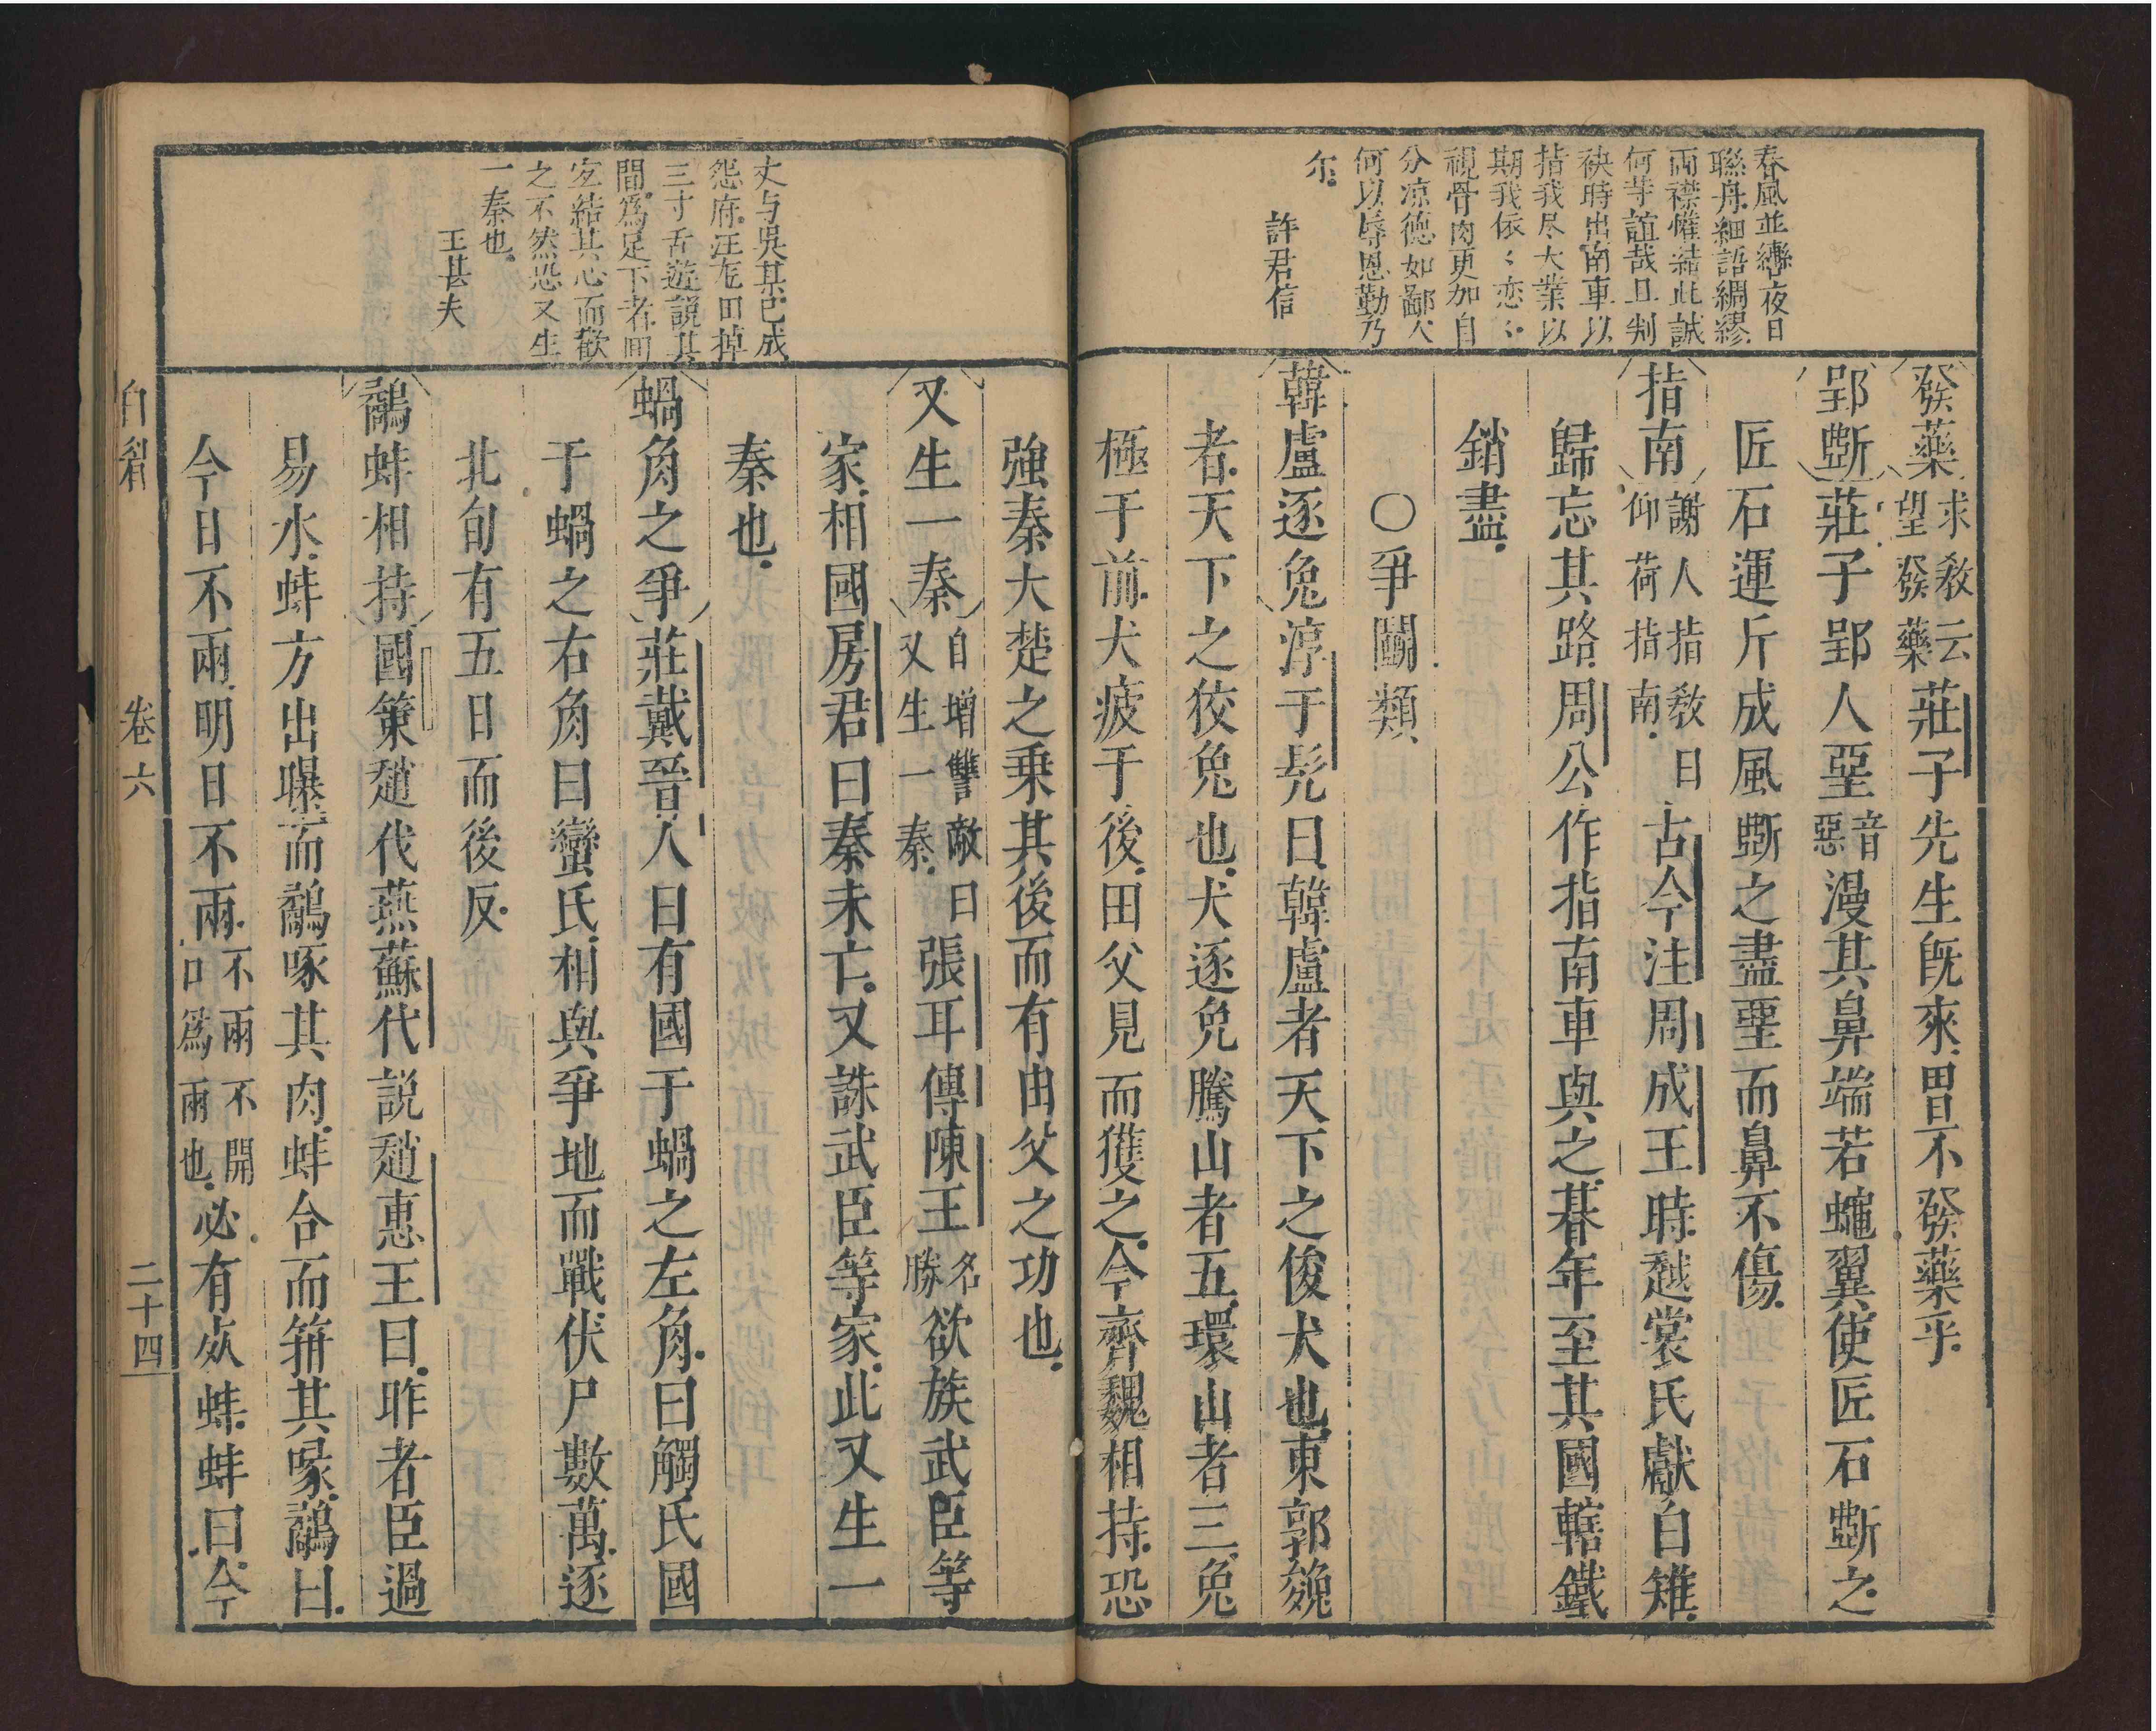 春風並轡夜日
聯舟細語綢繆
両襟慛結此誠
何等誼哉且判
袂時出南車以
指我尽大業以
期我依〻恋〻
視骨肉更加自
分凉德如鄙人
何以辱恩勤乃
尓
許君信
發藥求教云望發藥莊子先生既來曽不發藥乎
郢斲莊子郢人堊音惡漫其鼻端若蠅翼使匠石斲之
匠石運斤成風斲之盡堊而鼻不傷
指南謝人指教曰仰荷指南古今注周成王時越裳氏獻白雉
歸忘其路周公作指南車與之朞年至其國轄鐵
銷盡
○爭鬭類
韓盧逐兔淳于髠曰韓盧者天下之俊犬也東郭㕙
者天下之佼兔也犬逐兔騰山者五環山者三兔
極于前犬疲于後田父見而獲之今齊魏相持恐
丈与吳某已成
怨府汪左田掉
三寸舌遊說其
間爲足下者間
宻結其心而歡
之不然恐又生
一秦也
王甚夫
強秦大楚之乗其後而有田父之功也
又生一秦自增讐敵曰又生一秦張耳傳陳王名勝欲族武臣等
家相國房君曰秦未亡又誅武臣等家此又生一
秦也
蝸角之爭莊戴晉人曰有國于蝸之左角曰觸氏國
于蝸之右角曰蠻氏相與爭地而戰伏尸數萬逐
北旬有五日而後反
鷸蚌相持國策趙代燕蘇代説趙惠王曰昨者臣過
易水蚌方出曝而鷸啄其肉蚌合而箝其喙鷸曰
今日不兩明日不兩不兩不開口爲兩也必有死蚌蚌曰今
卷六
二十四